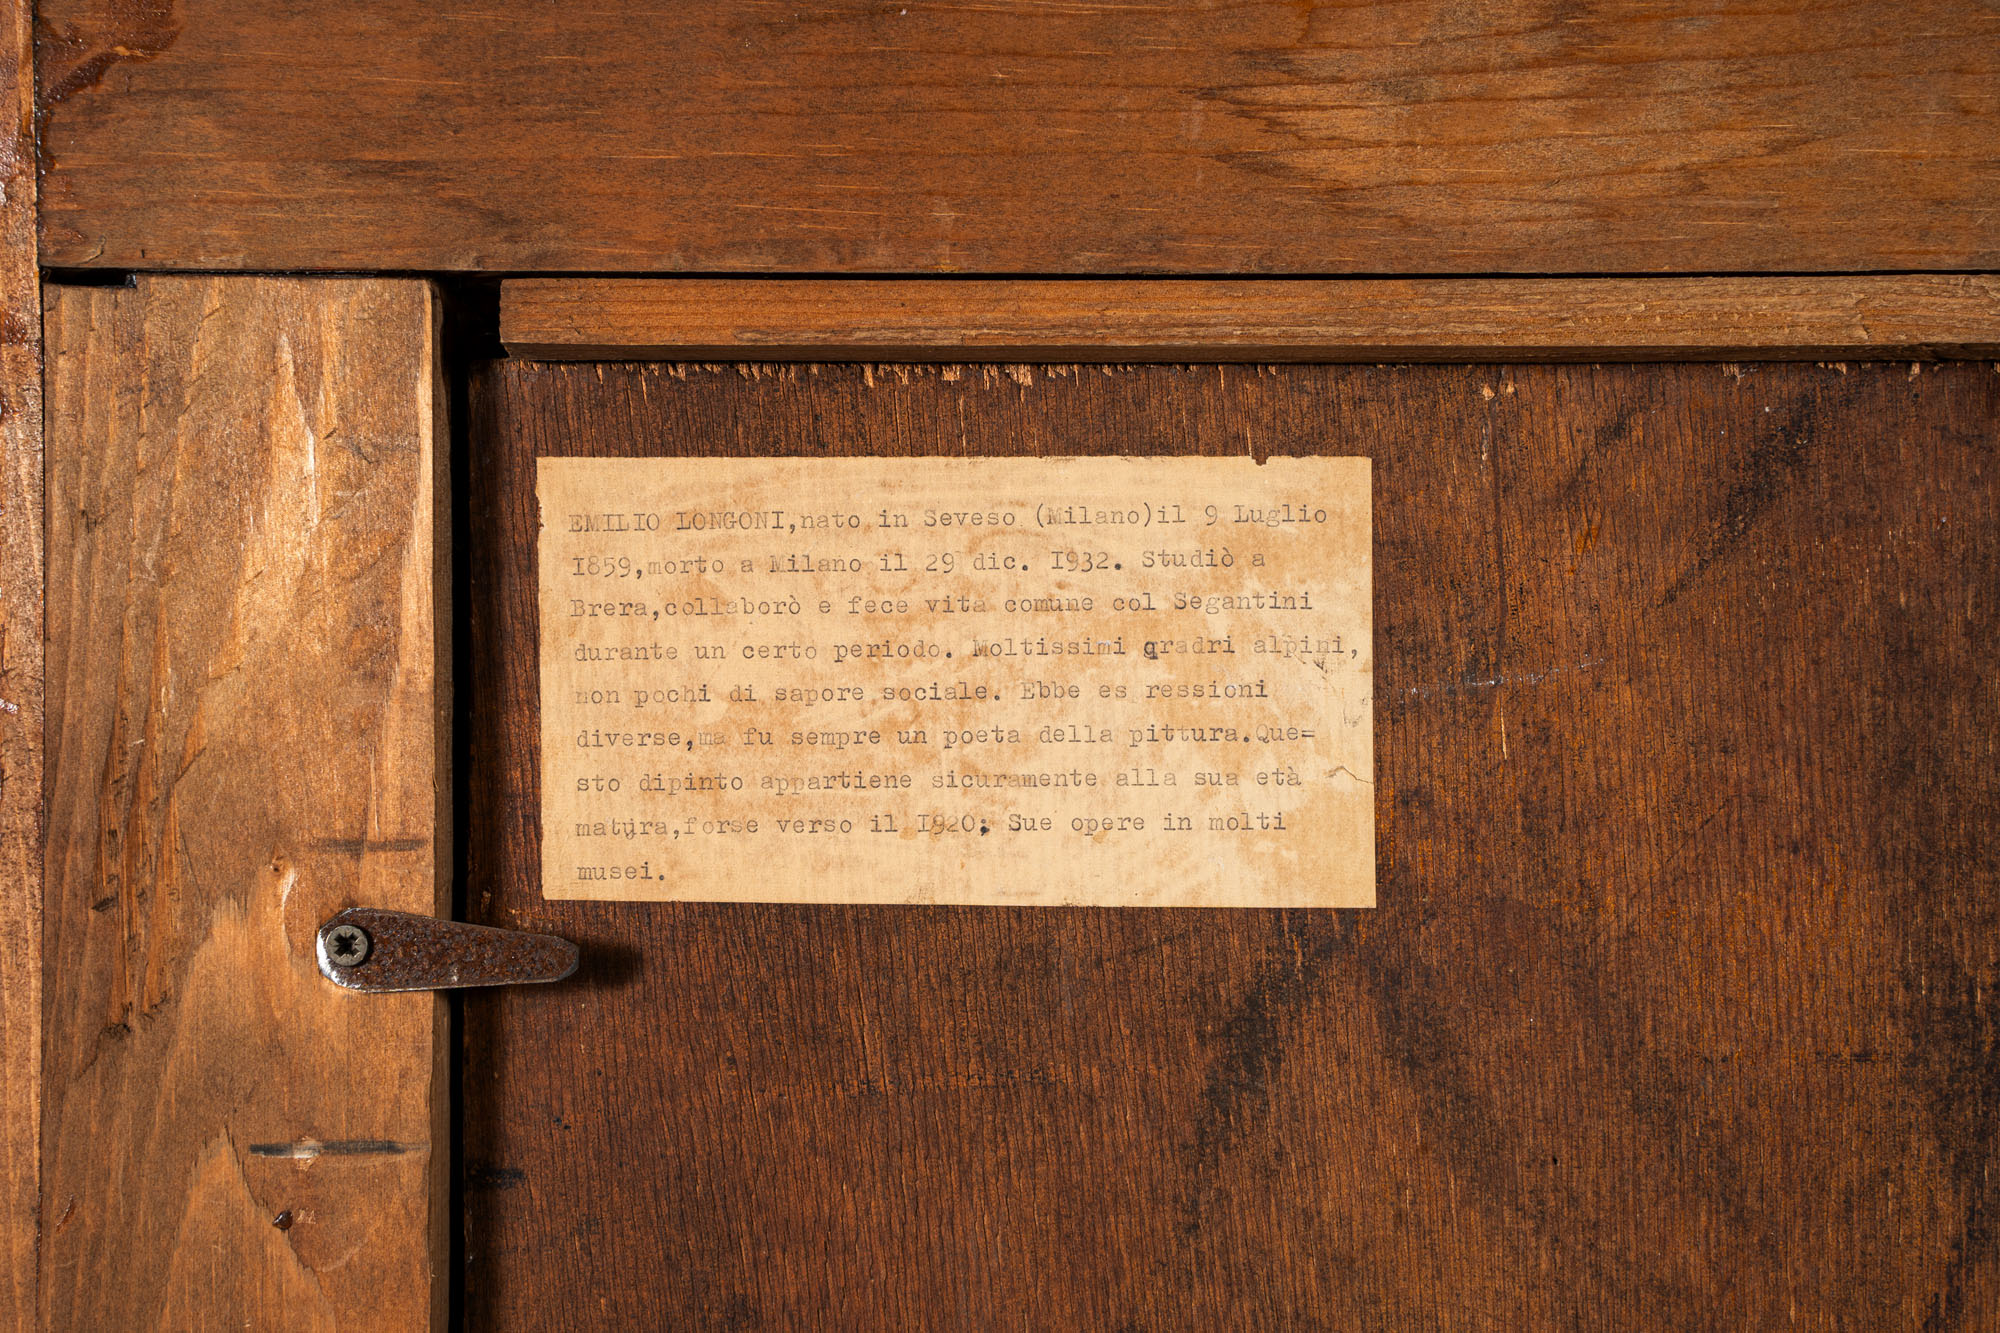 EMILIO LONGONI,nato in Seveso (Milano)il 9 Luglio
I859,morto a Milano il 29 dic. I932. Studiò a
Brera,collaborò e fece vita comune col Segantini
durante un certo periodo. Moltissimi qradri alpini,
non pochi di sapore sociale. Ebbe es ressioni
diverse,ma fu sempre un poeta della pittura.Que=
sto dipinto appartiene sicuramente alla sua età
matura,forse verso il I920; Sue opere in molti
musei.